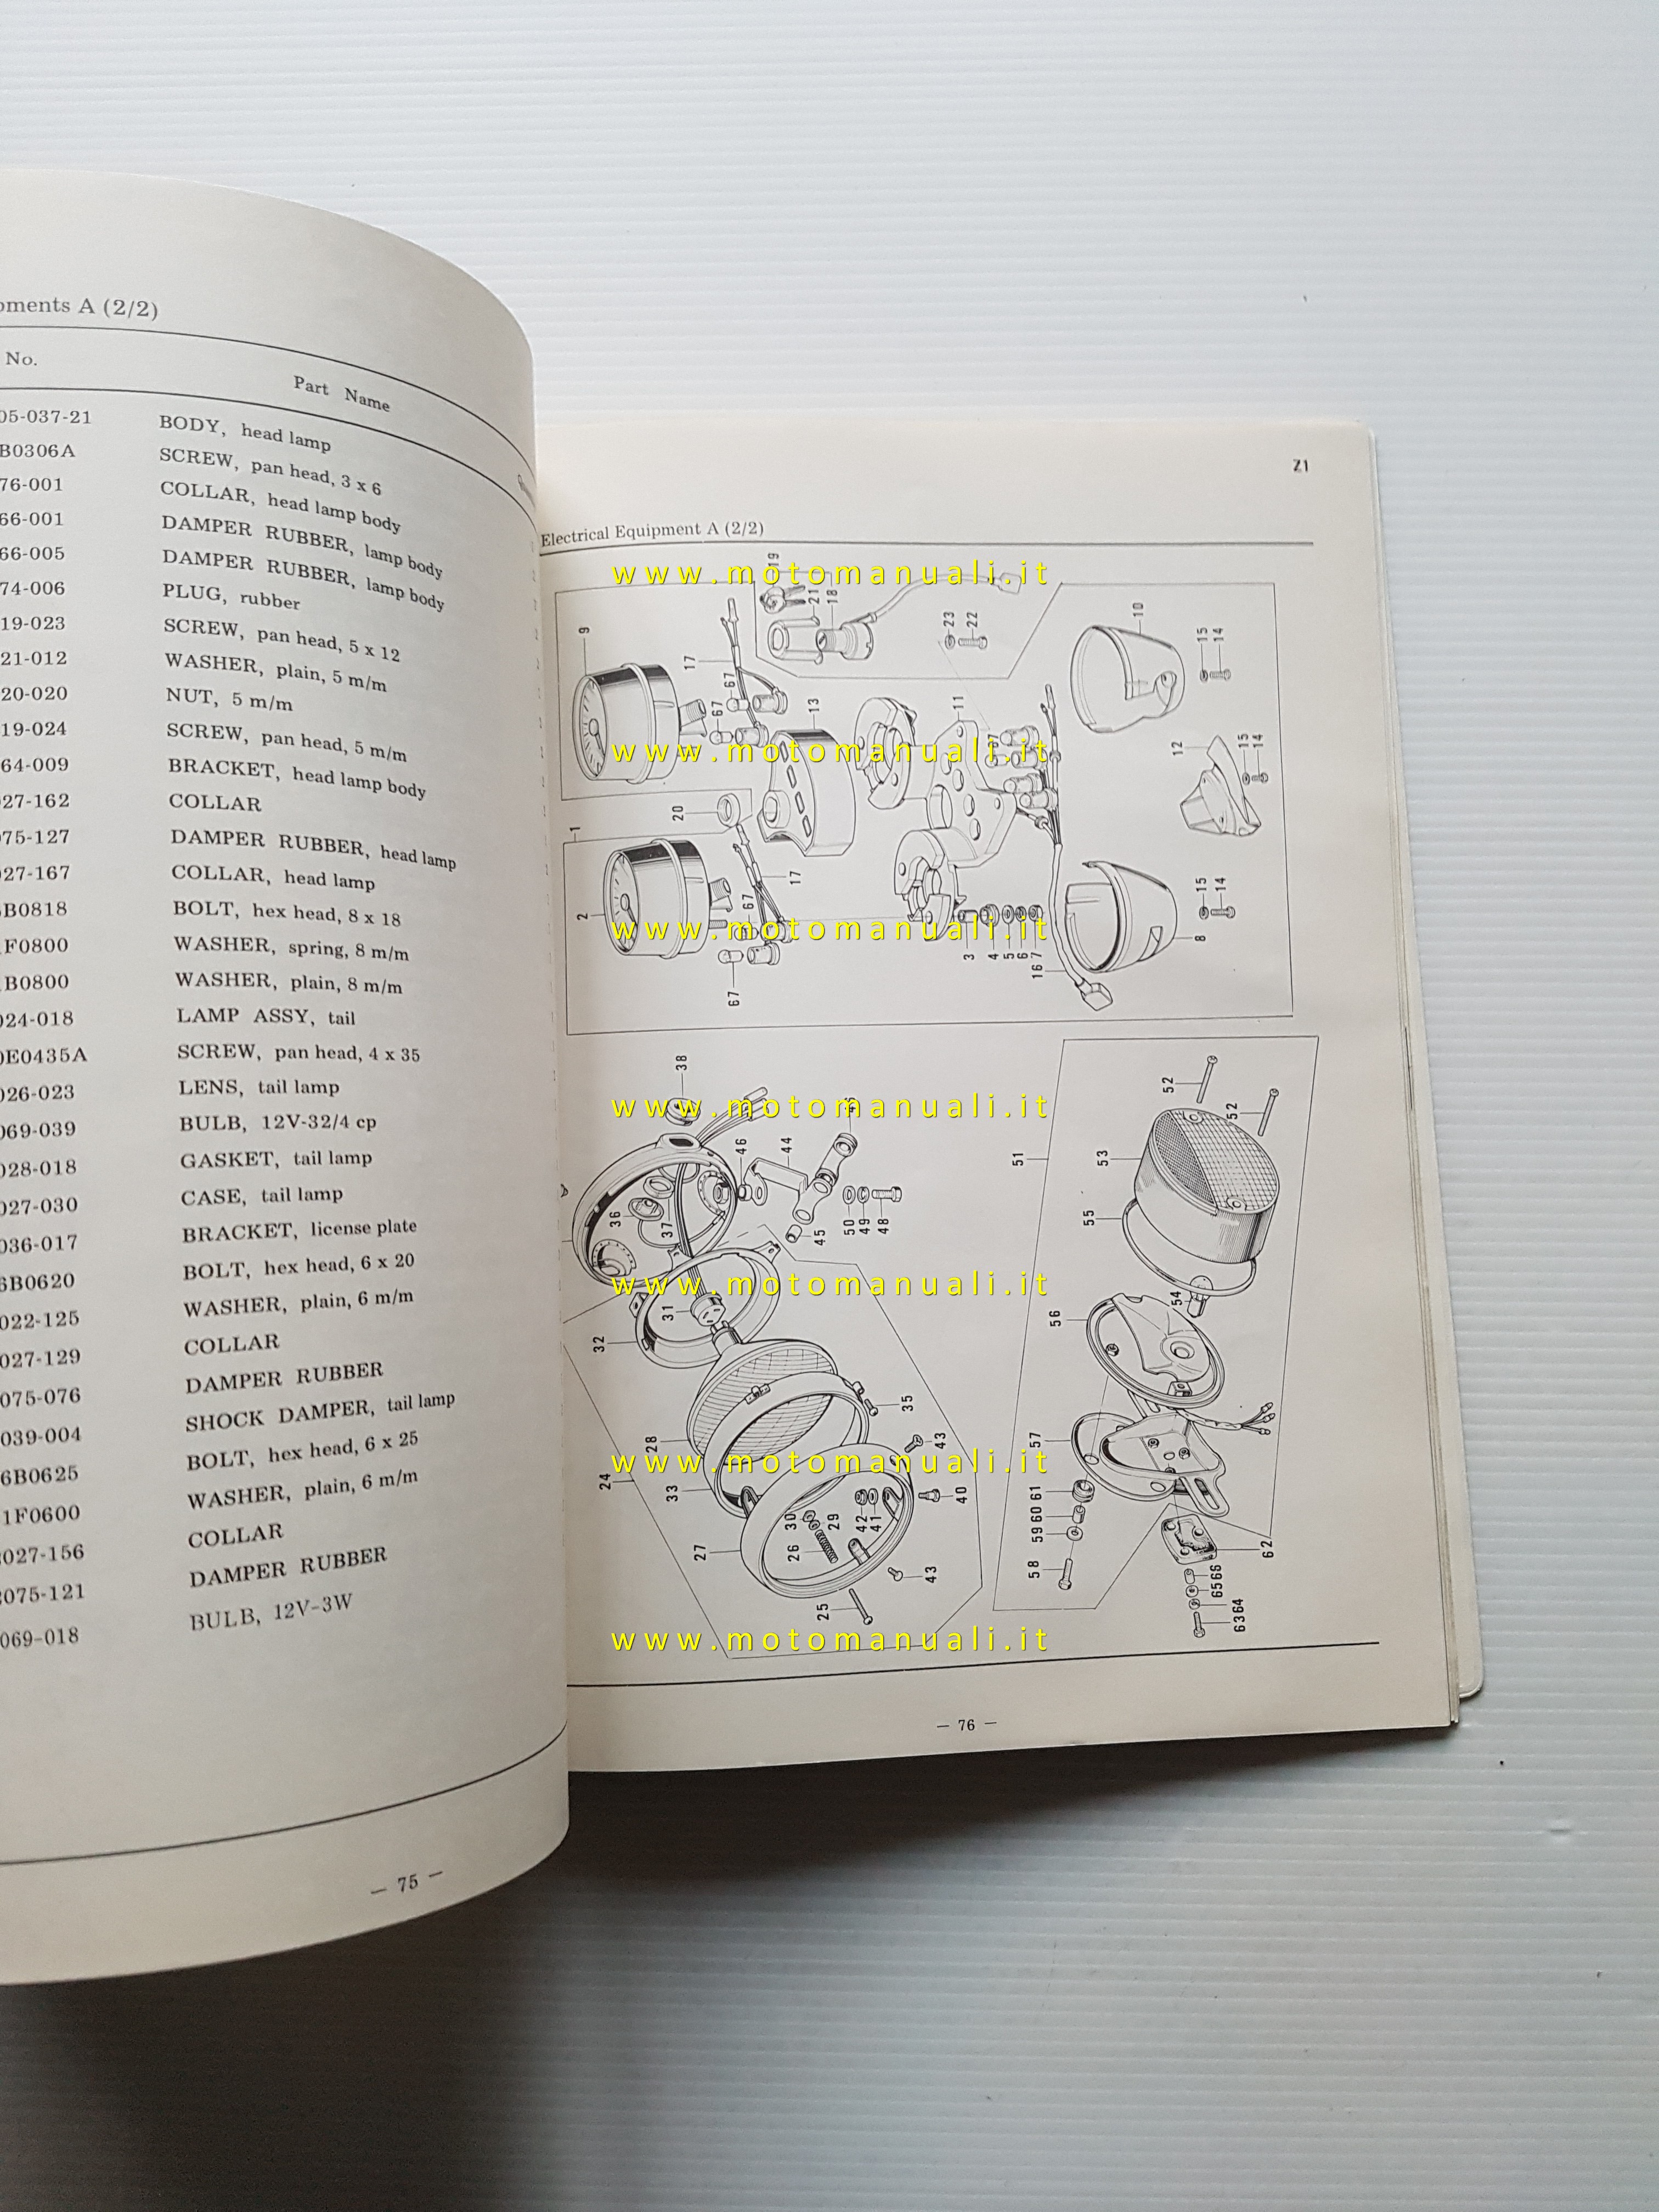 pments A (2/2)
No.
Part Name
05-037-21 BODY, head lamp
B0306A SCREW, pan head, 3 x 6
76-001 COLLAR, head lamp body
66-001 DAMPER RUBBER, lamp body
66-005 DAMPER RUBBER, lamp body
74-006 PLUG, rubber
19-023 SCREW, pan head, 5 x 12
21-012 WASHER, plain, 5 m/m
20-020 NUT, 5 m/m
19-024 SCREW, pan head, 5 m/m
64-009 BRACKET, head lamp body
27-162 COLLAR
75-127 DAMPER RUBBER, head lamp
27-167 COLLAR, head lamp
B0818 BOLT, hex head, 8 x 18
F0800 WASHER, spring, 8 m/m
B0800 WASHER, plain, 8 m/m
024-018 LAMP ASSY, tail
0E0435A SCREW, pan head, 4 x 35
026-023 LENS, tail lamp
069-039 BULB, 12V-32/4 cp
028-018 GASKET, tail lamp
027-030 CASE, tail lamp
036-017 BRACKET, license plate
6B0620 BOLT, hex head, 6 x 20
022-125 WASHER, plain, 6 m/m
027-129 COLLAR
075-076 DAMPER RUBBER
039-004 SHOCK DAMPER, tail lamp
6B0625 BOLT, hex head, 6 x 25
1F0600 WASHER, plain, 6 m/m
027-156 COLLAR
075-121 DAMPER RUBBER
069-018 BULB, 12V-3W
— 75 —
Z1
Electrical Equipment A (2/2)
www.motomanuali.it
9
19
21
18
23
22
10
15
14
17
67
67
13
11
www.motomanuali.it
12
15
14
20
1
2
17
67
67
www.motomanuali.it
3
4
5
6
7
16
8
15
14
38
www.motomanuali.it
46
44
36
37
45
50
49
48
51
52
52
53
55
54
56
www.motomanuali.it
32
31
28
35
43
24
33
www.motomanuali.it
27
30
29
26
42
41
40
43
25
57
61
60
59
58
62
66
65
64
63
www.motomanuali.it
— 76 —